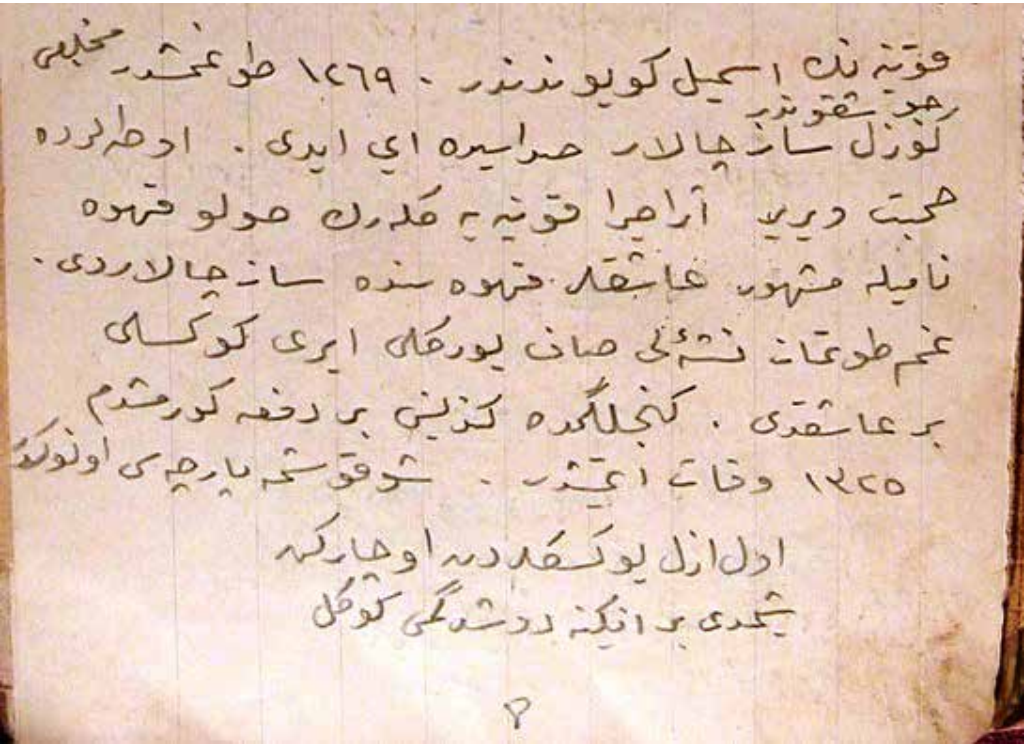 قونیه نك اسمیل كویوندندر . ١٢٦٩ طوغمشدر مخلصی
رجب شقوندر
كوزل ساز چالار صداسیده ای ایدی . اوطه لرده
صحبت ویریر آرا صرا قونیه یه كله رك صولو قهوه
نامیله مشهور عاشقلر قهوه سنده ساز چالاردی .
غم طوتماز نشئه لی صاف یوركلی ایری كوكسلی
بر عاشقدی . كنجلگمده كندیسنی بر دفعه كورمشدم
١٣٢٥ وفات ایتمشدر . شو قوشمه پارچه سی اونوكدر
اول ازل یوكسكلردن اوچاركن
شیمدی بر انگینه دوشدگمی كوكل